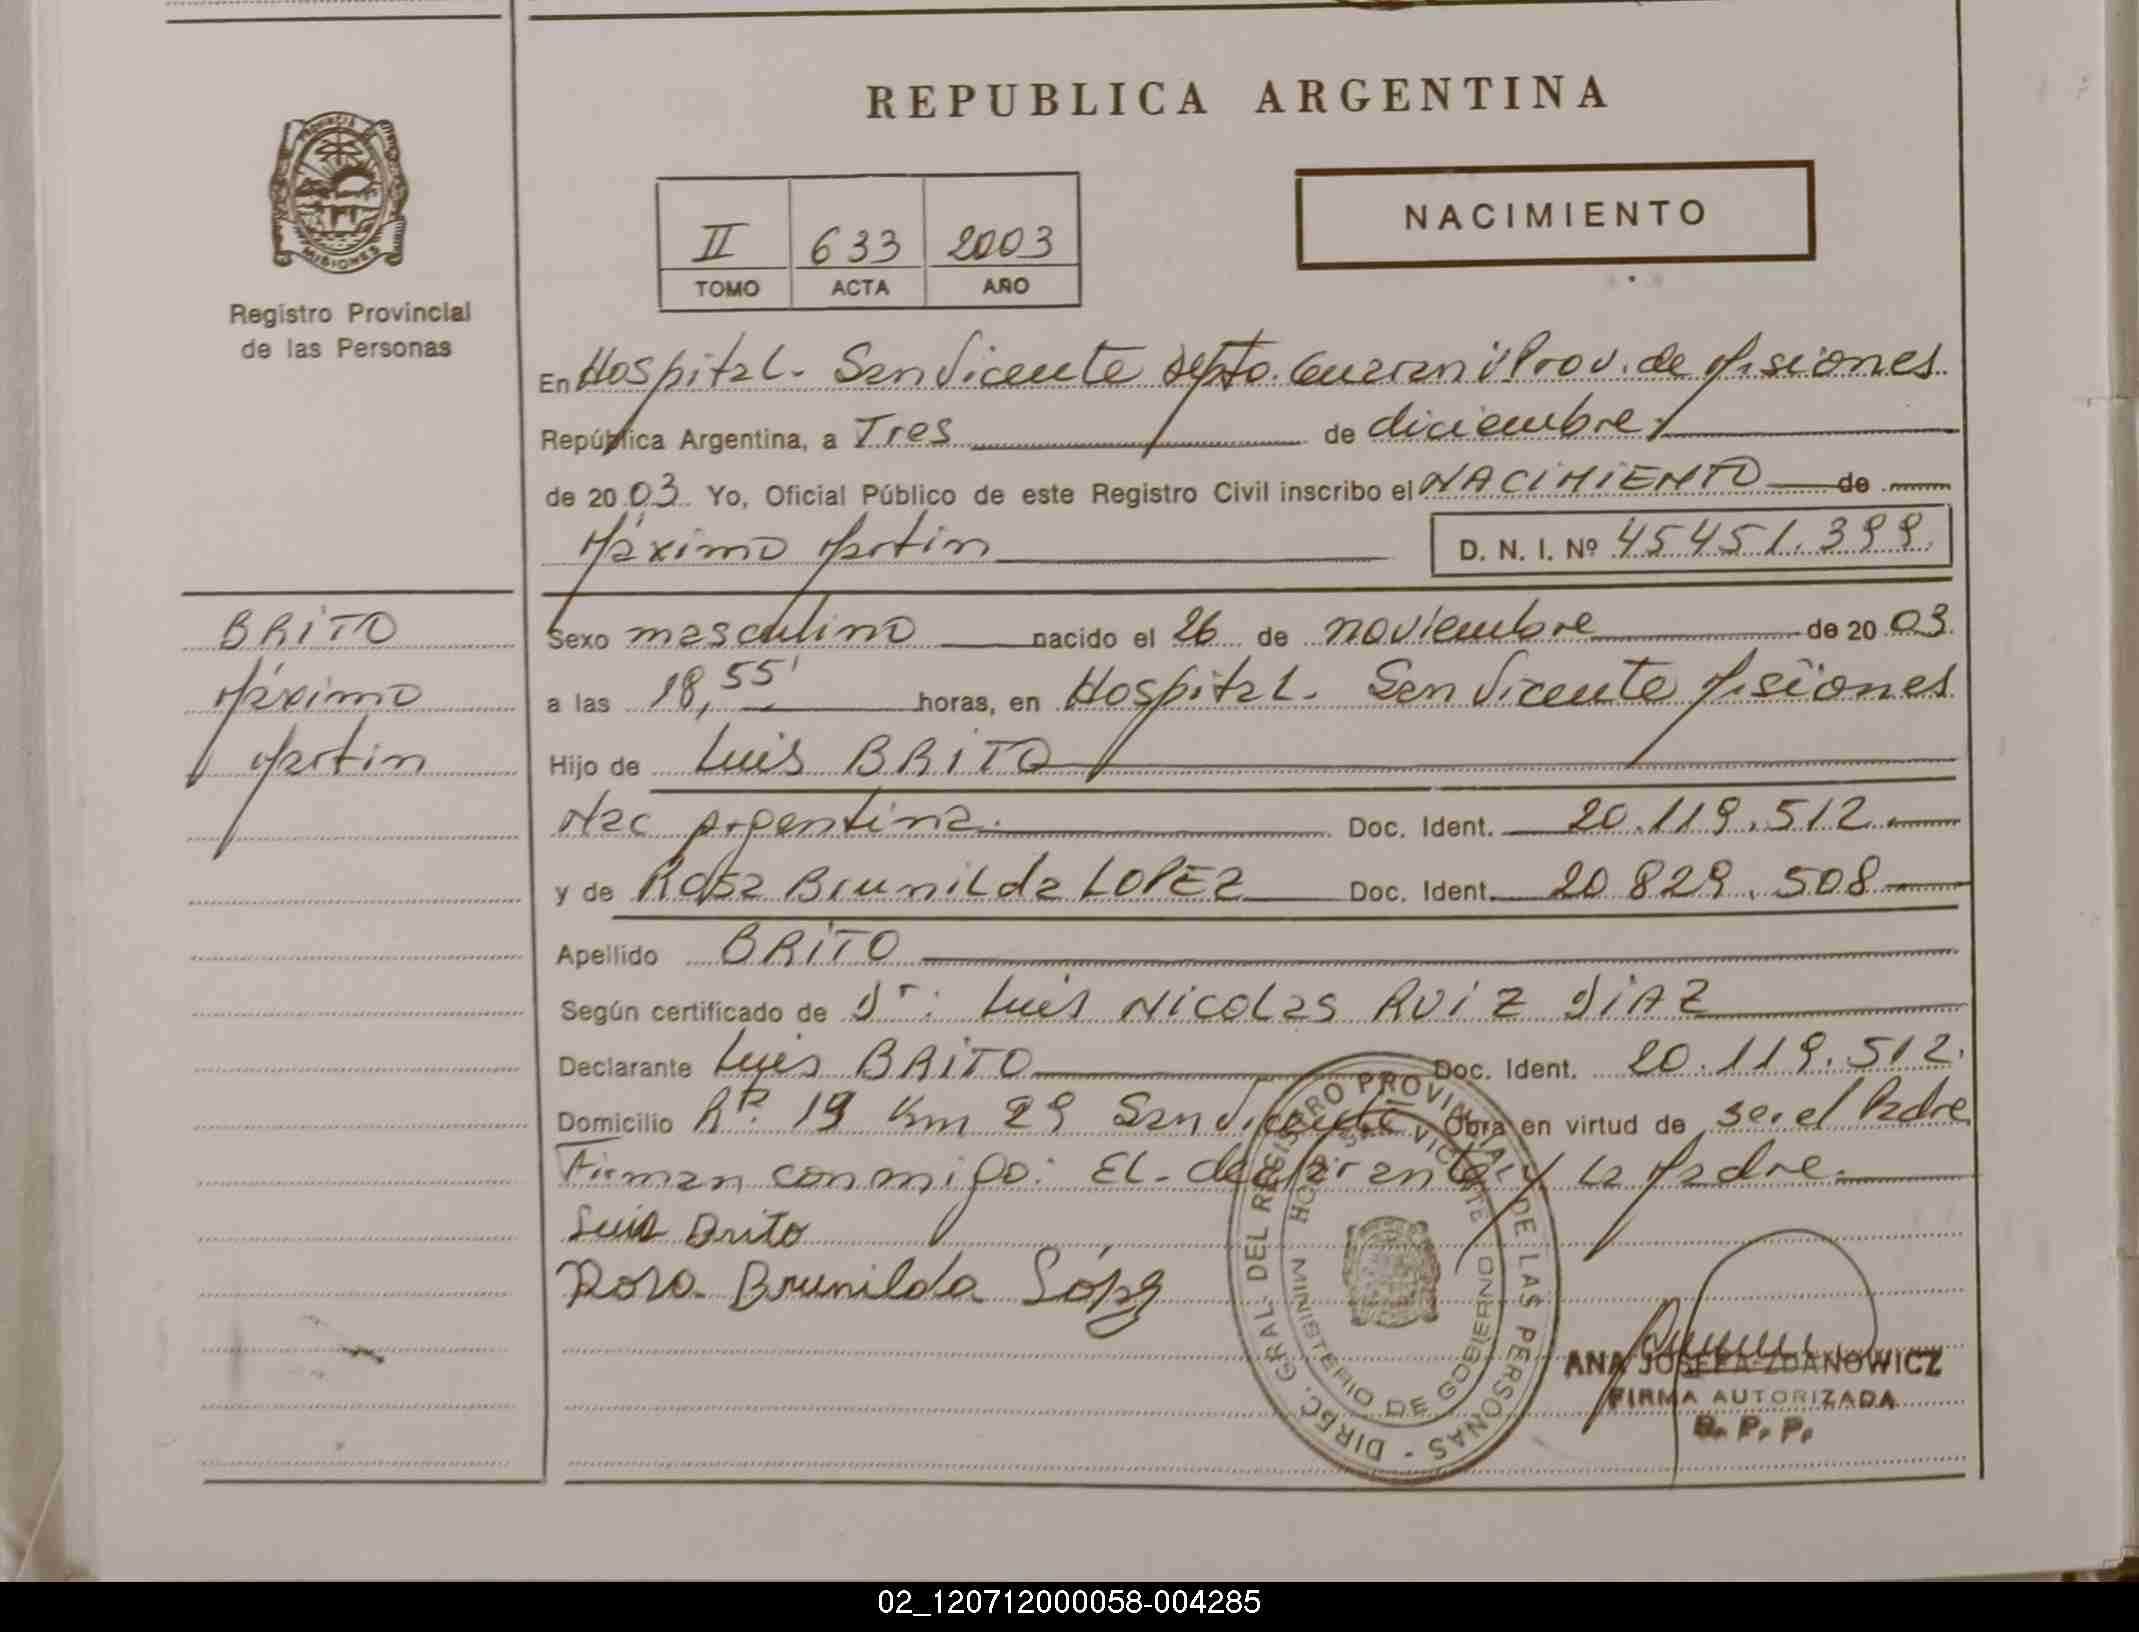 REPUBLICA ARGENTINA
PROVINCIA DE
MISIONES
Registro Provincial
de las Personas
II 633 2003
TOMO ACTA AÑO
NACIMIENTO
En Hospital. San Vicente Depto. Guarani Prov. de Misiones
República Argentina, a Tres de diciembre
de 2003. Yo, Oficial Público de este Registro Civil inscribo el NACIMIENTO de
Máximo Martin D. N. I. Nº 45451.399
BRITO
Máximo
Martin
Sexo masculino nacido el 26 de noviembre de 2003.
a las 18,55' horas, en Hospital. San Vicente Misiones
Hijo de Luis BRITO
Nac Argentina. Doc. Ident. 20.119.512.
y de Rosa Brunilda LOPEZ Doc. Ident. 20 829.508
Apellido BRITO
Según certificado de Dr: Luis Nicolas RUIZ DIAZ
Declarante Luis BRITO Doc. Ident. 20.119.512.
Domicilio Rª. 19 Km 29 San Vicente Obra en virtud de ser el Padre
Firman conmigo: EL-declarante y La Madre.
Luis Brito
Rosa Brunilda López
DIREC. GRAL. DEL REGISTRO PROVINCIAL DE LAS PERSONAS -
HOSP. SAN VICENTE
MINISTERIO DE GOBIERNO
ANA JOSEFA ZDANOWICZ
FIRMA AUTORIZADA
R. P. P.
02_120712000058-004285